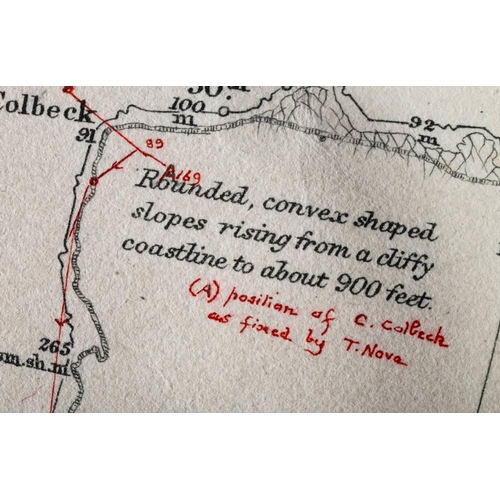 Colbeck
100
m
92
m
91
89
A 169
Rounded, convex shaped
slopes rising from a cliffy
coastline to about 900 feet.
(A) position of C. Colbeck
as fixed by T. Nova
265
m.sh.m